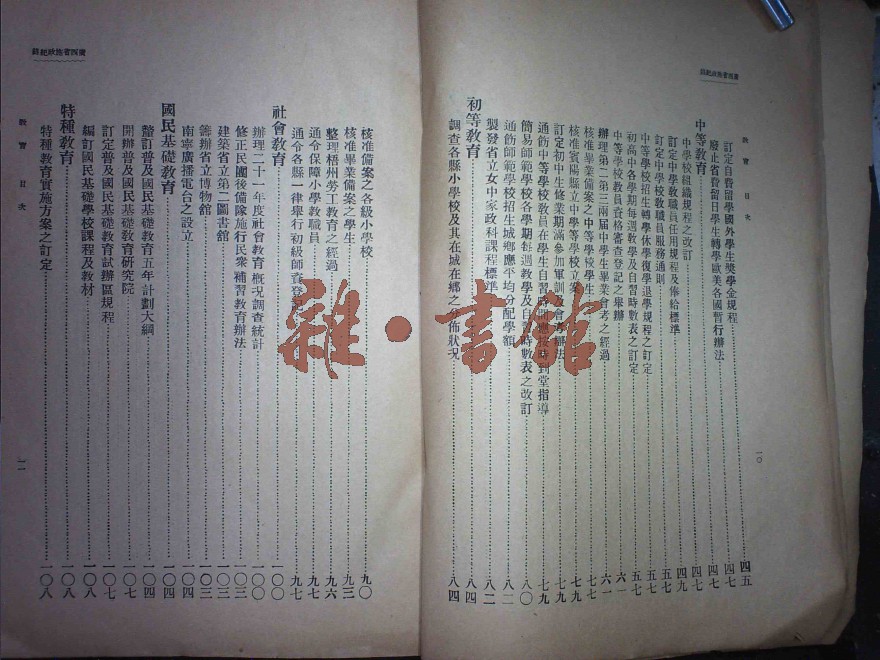 廣西省施政紀錄
教育 目次
一〇
訂定自費留學國外學生獎學金規程 四五
廢止省費留日學生轉學歐美各國暫行辦法 四七
中等教育 四七
中學校組織規程之改訂 四七
訂定中學教職員任用規程及俸給標準 四九
訂定中學校教職員服務通則 五七
中等學校招生轉學休學復學退學規程之訂定 五七
初高中各學期每週教學及自習時數表之訂定 五七
中等學校教員資格審查登記之舉辦 六一
辦理第二第三兩屆中學生畢業會考之經過 六一
核准畢業備案之中等學校學生 七七
核准賓陽縣立中等學校立案 七九
訂定初中生修業期滿參加軍訓及會考辦法 七九
通飭中等學校教員在學生自習時間應按時到堂指導 七九
簡易師範學校各學期每週教學及自習時數表之改訂 八〇
通飭師範學校招生城鄉應平均分配學額 八二
製發省立女中家政科課程標準 八二
初等教育 八四
調查各縣小學校及其在城在鄉之分佈狀況 八四
廣西省施政紀錄
教育 目次
一一
核准備案之各級小學校 九〇
核准畢業備案之學生 九三
整理梧州勞工教育之經過 九六
通令保障小學教職員 九七
通令各縣一律舉行初級師資登記 九七
社會教育 一〇〇
辦理二十一年度社會教育概況調查統計 一〇〇
修正民團後備隊施行民衆補習教育辦法 一〇三
建築省立第二圖書館 一〇三
籌辦省立博物館 一〇三
南寧廣播電台之設立 一〇四
國民基礎教育 一〇四
釐訂普及國民基礎教育五年計劃大綱 一〇四
開辦普及國民基礎教育研究院 一〇七
訂定普及國民基礎教育試辦區規程 一〇七
編訂國民基礎學校課程及教材 一〇八
特種教育 一〇八
特種教育實施方案之訂定 一〇八
雜·書館